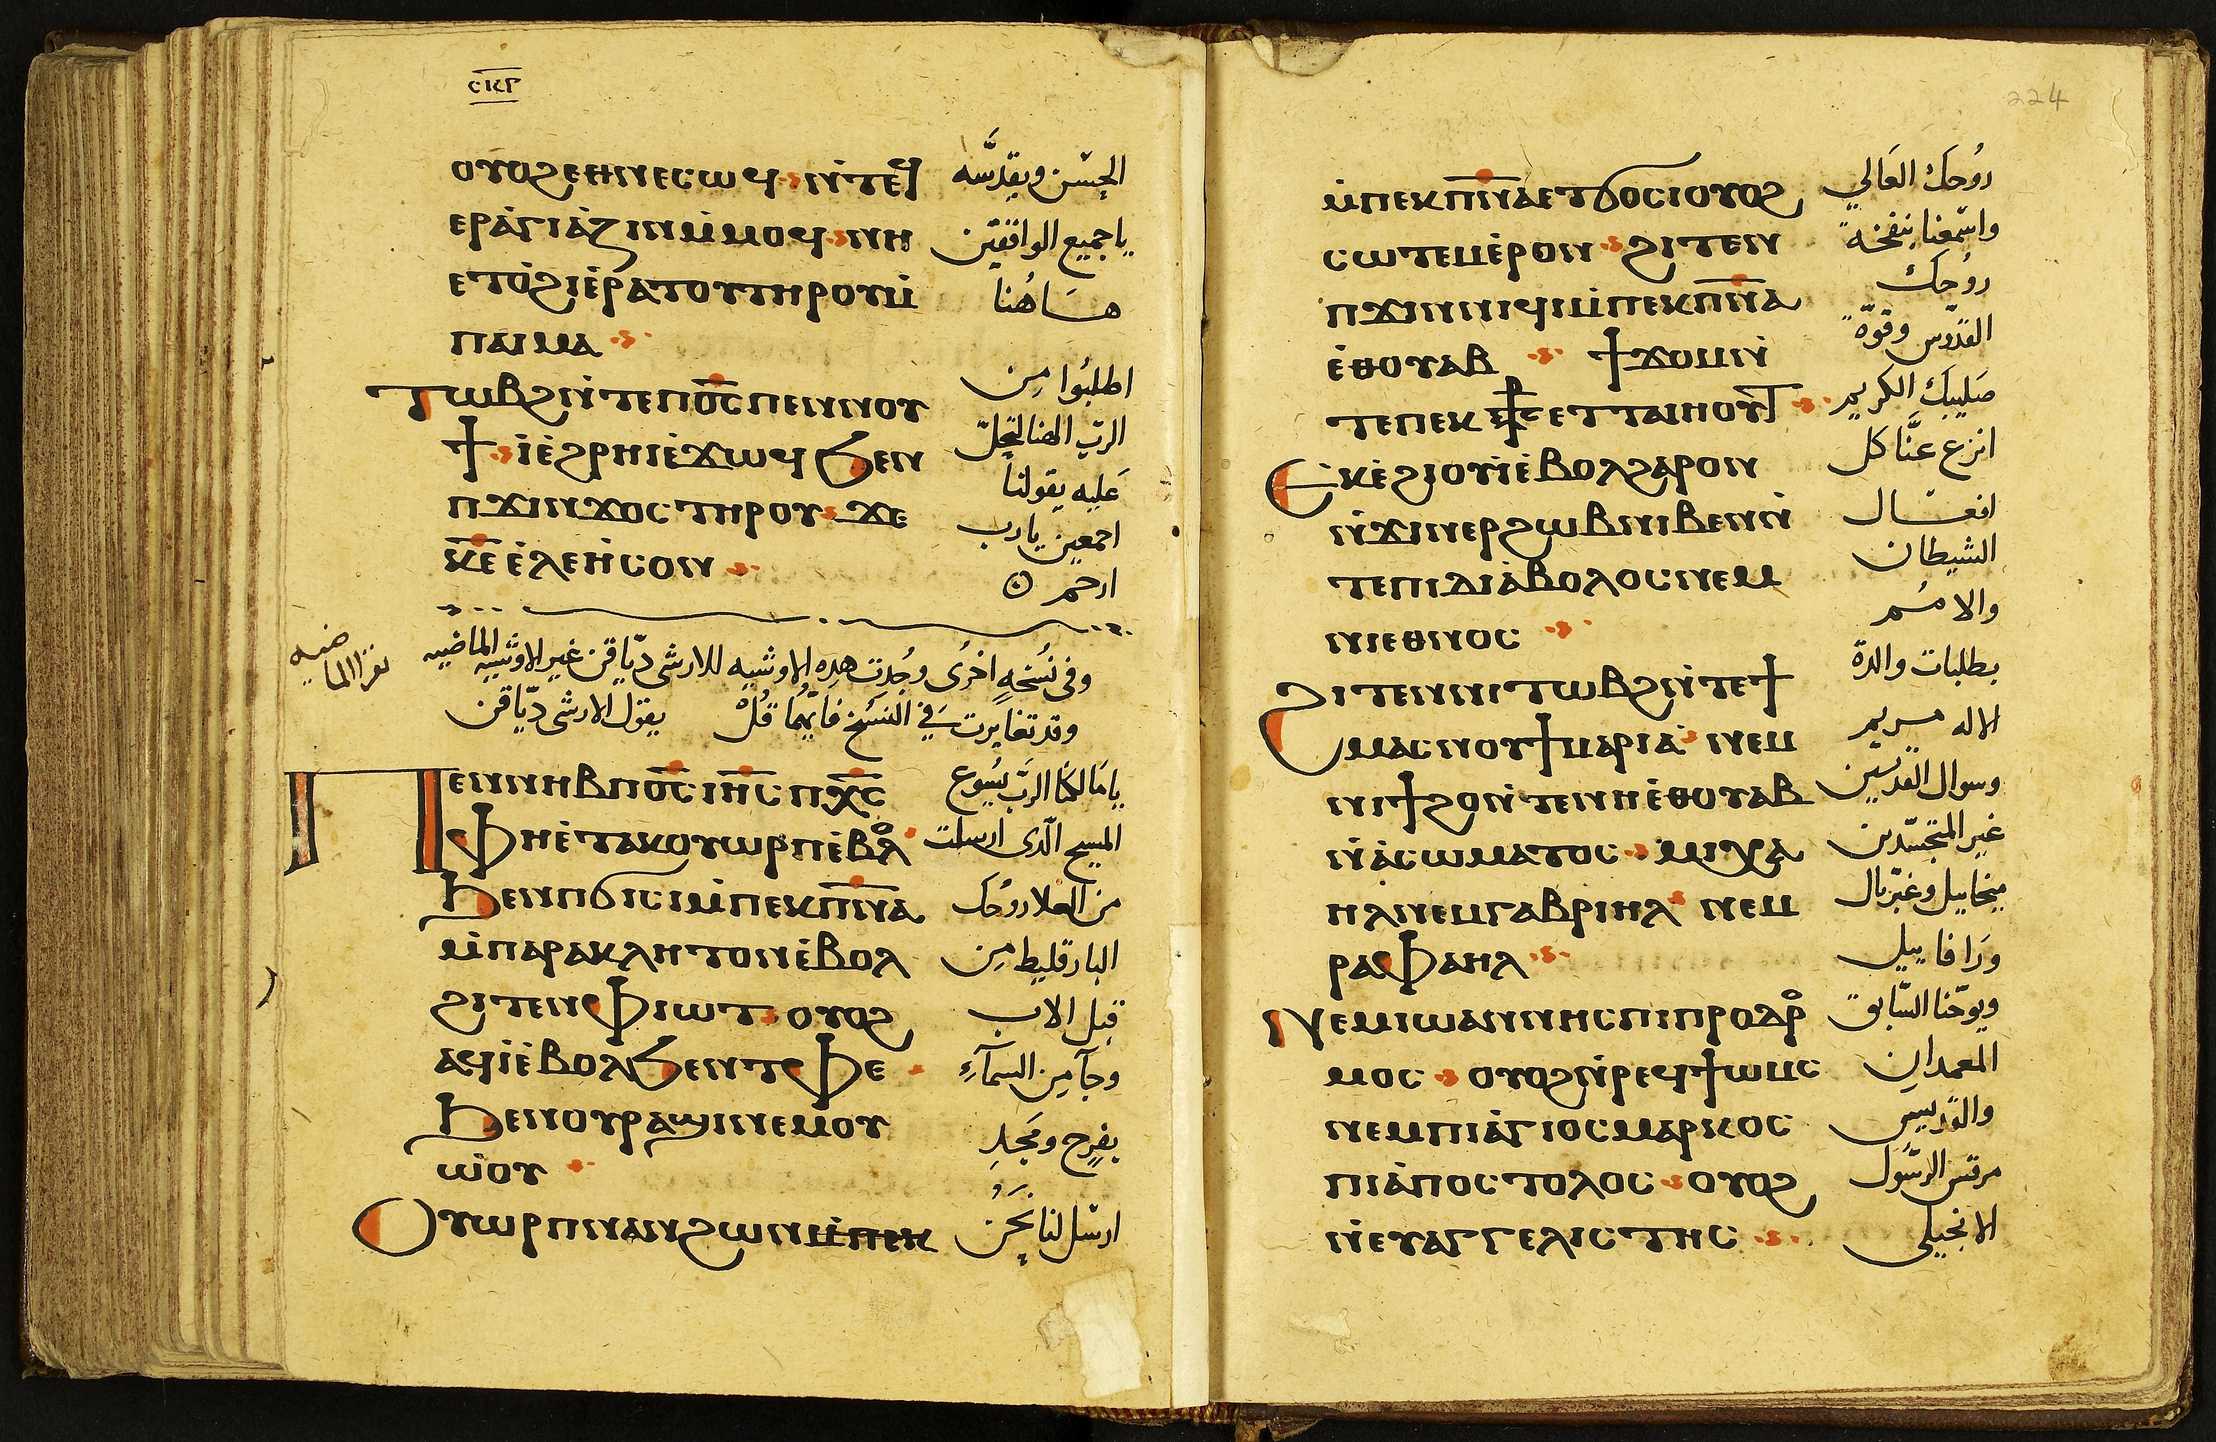 ⲥⲕⲅ
ⲟⲩⲟϩ ⲉⲑⲛⲉⲥⲱϥ ⲛ̇ⲧⲉϥ
ⲉⲣⲁ̇ⲅⲓⲁ̇ⲍⲓⲛ ⲙ̇ⲙⲟϥ ⲛⲏ
ⲉⲧⲟ̇ϩⲓ ⲉ̇ⲣⲁⲧⲟⲩ ⲧⲏⲣⲟⲩ ⲙ̇
ⲡⲁⲓⲙⲁ
ⲧⲱⲃϩ ⲛ̇ⲧⲉⲡⲟ̅ⲥ̅ ⲡⲉⲛⲛⲟⲩ
ϯ ⲉ̇ϩⲣⲏⲓ ⲉ̇ϫⲱϥ ϧⲉⲛ
ⲡϫⲓⲛϫⲟⲥ ⲧⲏⲣⲟⲩ ϫⲉ
ⲕ̅ⲉ̅ ⲉ̇ⲗⲉⲏ̇ⲥⲟⲛ
الحسن ويقدسه
ياجميع الواقفين
هساهُنا
اطلبُوا مِن
الرب الهنا لتحلّ
عَليه يقولنا
اجمعين يارب
ارحم
وفى نُسخهٍ اخرُى وجُدت هذِه الاوشيه للارشى ديّاقن غير الاوشيه الماضيه
وقد تغايرت فِي النسَخ فايهُّما قُلْ يقول الارشى ديّاقن
ⲡⲉⲛⲛⲏⲃ ⲡⲟ̅ⲥ̅ ⲓⲏ̅ⲥ̅ ⲡⲭ̅ⲥ̅
ⲫⲏⲉ̇ⲧⲁⲕⲟⲩⲱⲣⲡ ⲉ̇ⲃⲟⲗ
ϧⲉⲛ ⲡϭⲓⲥⲓ ⲙ̇ⲡⲉⲕⲡ̅ⲛ̅ⲁ̅
ⲙ̇ⲡⲁⲣⲁⲕⲗⲏⲧⲟⲛ ⲉ̇ⲃⲟⲗ
ϩⲓⲧⲉⲛ ⲫⲓⲱⲧ ⲟⲩⲟϩ
ⲁϥⲓ̇ ⲉ̇ⲃⲟⲗ ϧⲉⲛ ⲧⲫⲉ
ϧⲉⲛ ⲟⲩⲣⲁϣⲓ ⲛⲉⲙ ⲟⲩ
ⲱ̇ⲟⲩ
ⲟⲩⲱⲣⲡ ⲛⲁⲛ ϩⲱⲛ ⲙ̇ⲡⲉⲕ
يامَالكنا الربّ يسُوع
المسيح الّذى ارسلت
من العلا روُحك
البارقليط مِن
قبل الاب
وجآ مِن السمآءِ
بفرحٍ ومجَدِ
ارسَل لنا نَحنُ
224
ⲙ̇ⲡⲉⲕⲡ̅ⲛ̅ⲁ̅ ⲉⲧϭⲟⲥⲓ ⲟⲩⲟϩ
ⲥⲱⲧⲉⲙ ⲉ̇ⲣⲟⲛ ϩⲓⲧⲉⲛ
ⲡϫⲓⲛⲛⲓϥⲓ ⲙ̇ⲡⲉⲕⲡ̅ⲛ̅ⲁ̅
ⲉ̇ⲑⲟⲩⲁⲃ ϯϫⲟⲙ ⲛ̇
ⲧⲉⲡⲉⲕ⳨ ⲉⲧⲧⲁⲓⲏⲟⲩⲧ
ⲉⲕⲉ̇ϩⲓⲟⲩⲓ̇ ⲉ̇ⲃⲟⲗϩⲁⲣⲟⲛ
ⲛ̇ϫⲓⲛⲉⲣϩⲱⲃ ⲛⲓⲃⲉⲛ ⲛ̇
ⲧⲉⲡⲓⲇⲓⲁ̇ⲃⲟⲗⲟⲥ ⲛⲉⲙ
ⲛⲓⲉⲑⲛⲟⲥ
ϩⲓⲧⲉⲛ ⲛⲓⲧⲱⲃϩ ⲛ̇ⲧⲉϯ
ⲙⲁⲥⲛⲟⲩϯ ⲙⲁⲣⲓⲁ̇ ⲛⲉⲙ
ⲛⲓϯϩⲟ ⲛ̇ⲧⲉⲛⲏⲉ̇ⲑⲟⲩⲁⲃ
ⲛ̇ⲁ̇ⲥⲱⲙⲁⲧⲟⲥ ⲙⲓⲭⲁ
ⲏⲗ ⲛⲉⲙ ⲅⲁⲃⲣⲓⲏⲗ ⲛⲉⲙ
ⲣⲁⲫⲁⲏⲗ
ⲛⲉⲙ ⲓⲱⲁⲛⲛⲏⲥ ⲡⲓⲡⲣⲟⲇⲣⲟ
ⲙⲟⲥ ⲟⲩⲟϩ ⲛ̇ⲣⲉϥϯⲱⲙⲥ
ⲛⲉⲙ ⲡⲓⲁ̇ⲅⲓⲟⲥ ⲙⲁⲣⲕⲟⲥ
ⲡⲓⲁ̇ⲡⲟⲥⲧⲟⲗⲟⲥ ⲟⲩⲟϩ
ⲛ̇ⲉⲩⲁⲅⲅⲉⲗⲓⲥⲧⲏⲥ
روُحك العَالي
واسّمعنا بنفخة
روُحك
القدّوس وقوّة
صَليبك الكريم
انزع عنَّا كل
افعال
الشيطان
والامُم
بطلبات والدة
الاله مريم
وسوال القديسين
غير المتجسّدين
ميخاييل وغبريال
ورَافاييل
ويوحّنا السّابق
المعمدان
والقديس
مرقس الرسّول
الانجيلى